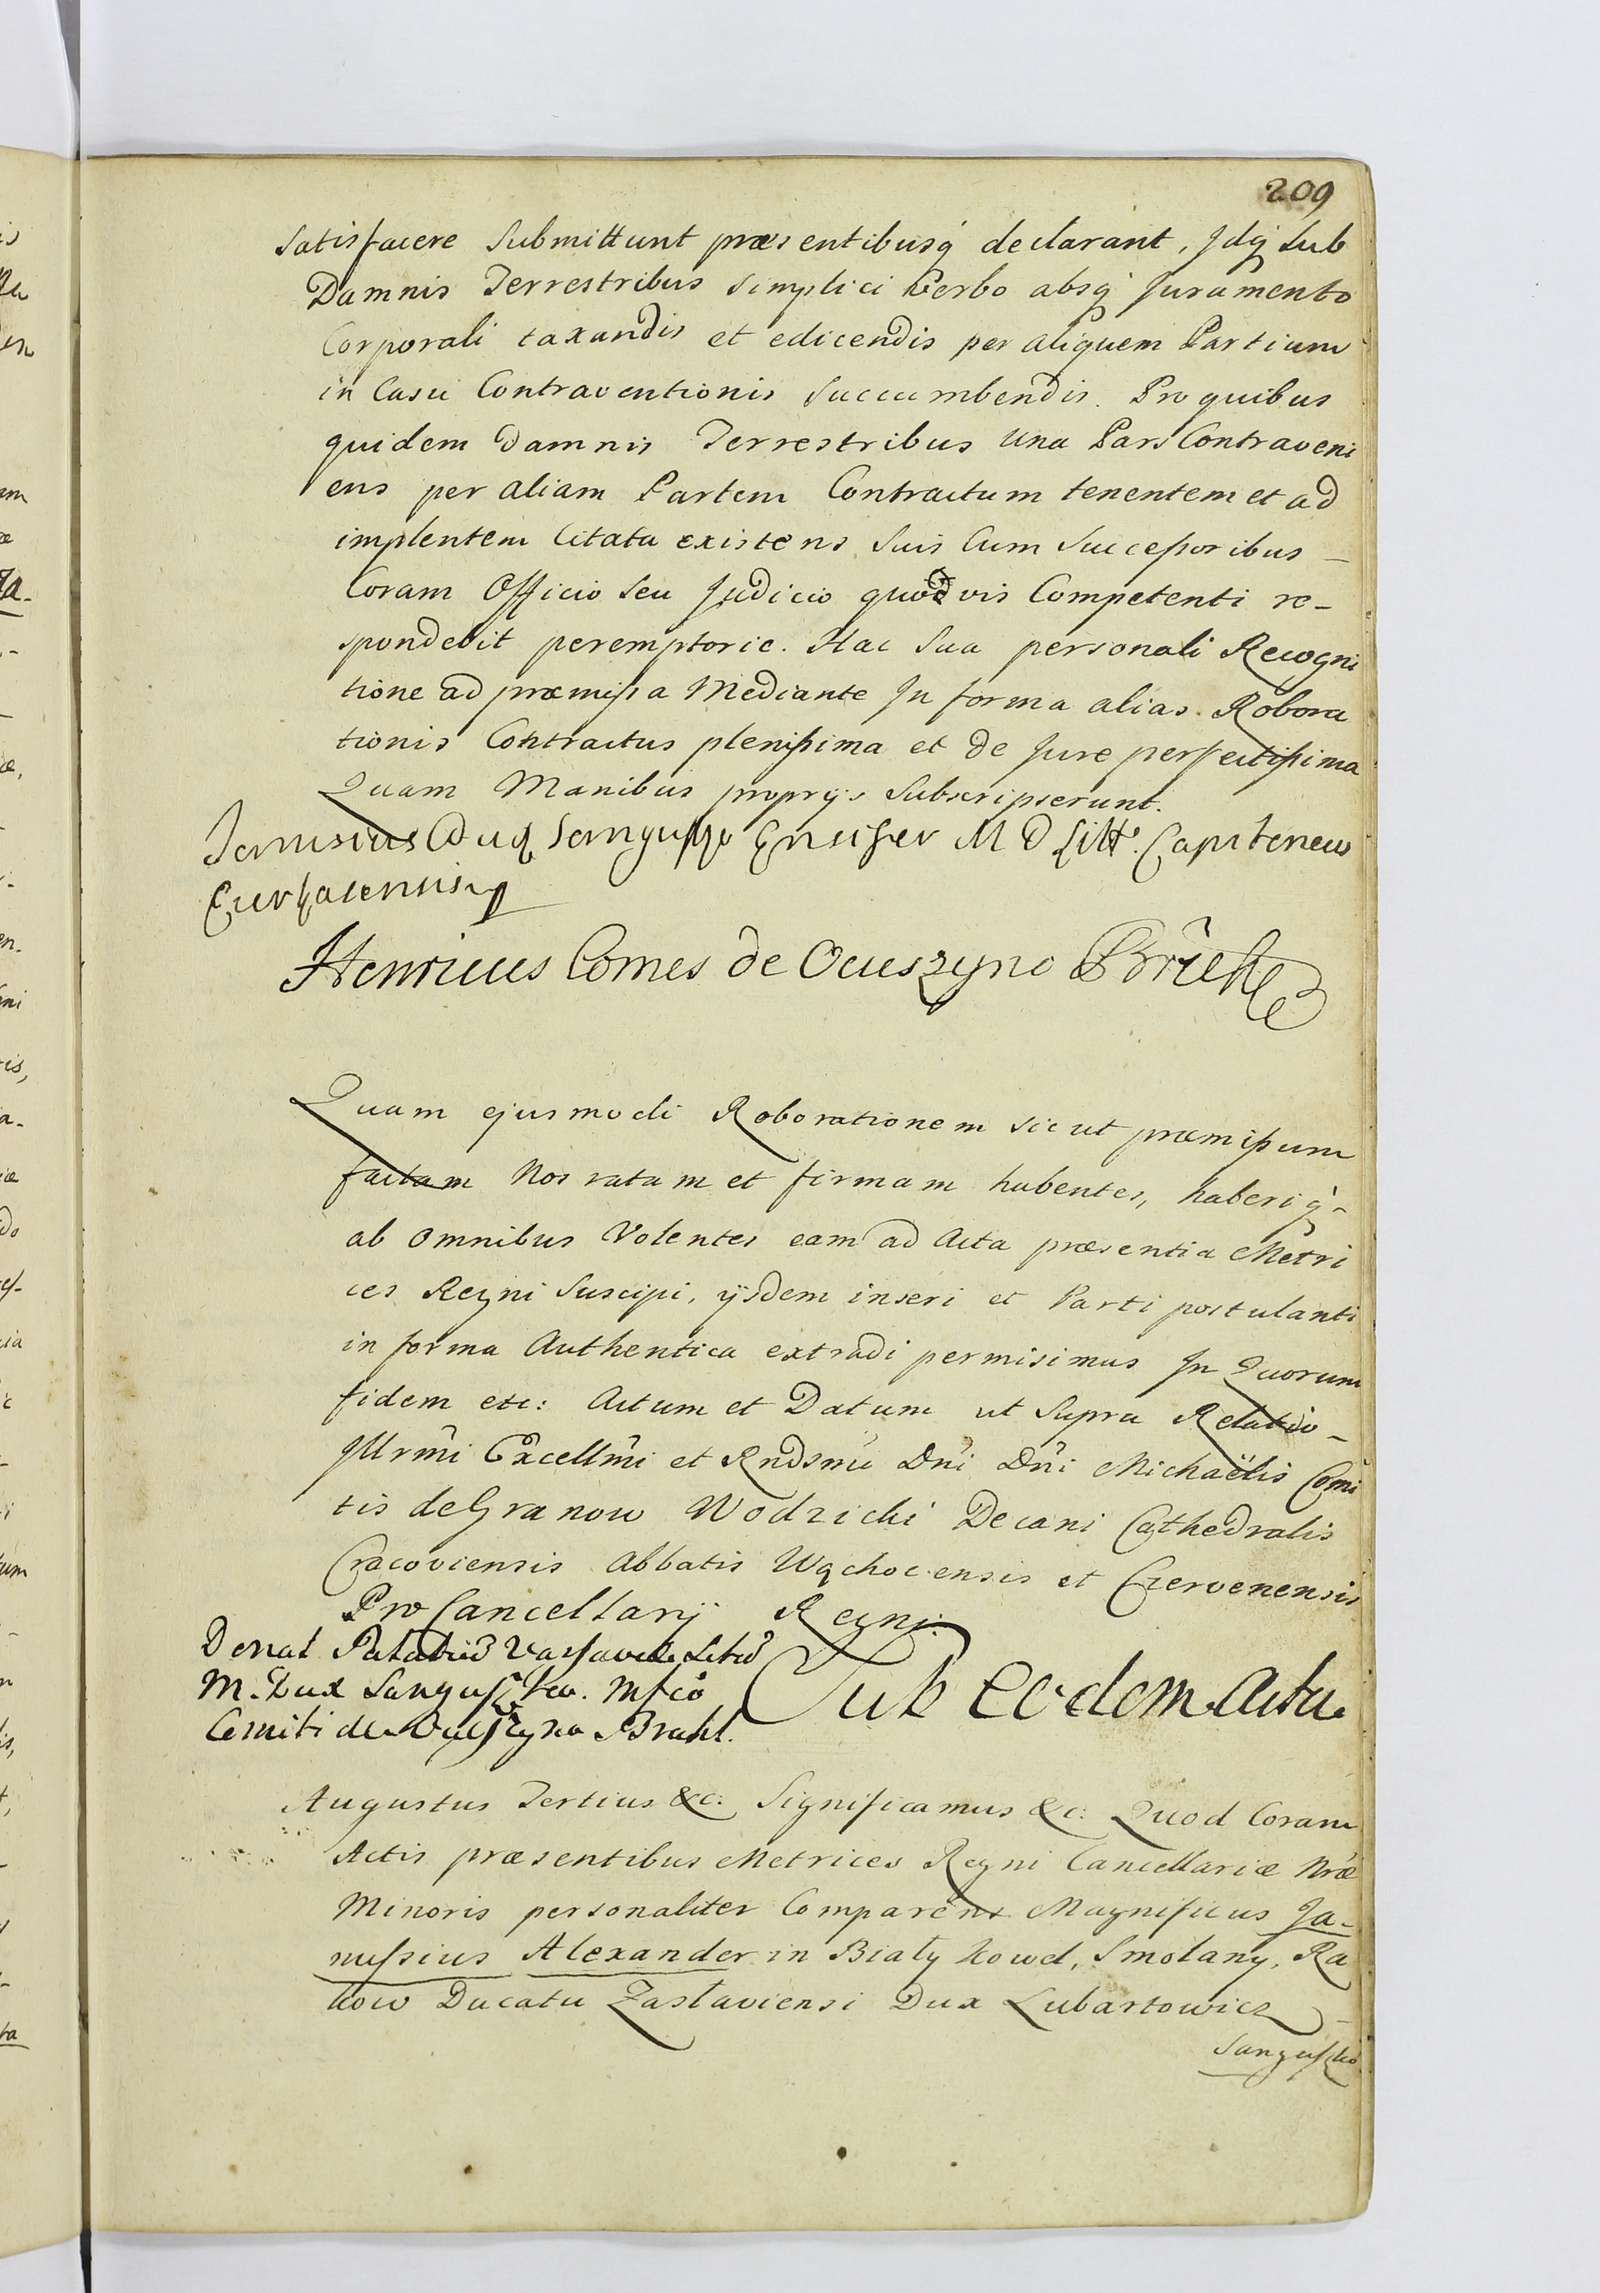 209
satisfacere Submittunt præsentibusq declarant, Jdq Sub
Damnis Terrestribus simplici Verbo absq Juramento
Corporali taxandis et edicendis per aliquem Partium
in Casu Contraventionis Succumbendis. Pro quibus
quidem Damnis Terrestribus Una Pars Contraveni
ens per aliam Partem Contractum tenentem et ad
implentem Citata existens Suis Cum Successoribus –
Coram Officio Seu Judicio quodvis Competenti re-
spondebit peremptorie. Hac Sua personali Recogni
tione ad præmissa Mediante Jn forma alias Robora
tionis Contractus plenissima et de Jure perfectissima
Quam Manibus proprijs Subscripserunt.
Janusius Dux Sanguszko Ensifer M D Litt. Capitaneus
Henricus Comes de Ocieszyno Brühl
Quam ejusmodi Roborationem sicut præmissum
factam Nos ratam et firmam habentes, haberiq-
ab omnibus Volentes eam ad Acta præsentia Metri
ces Regni Suscipi, ijsdem inseri et Parti postulanti
in forma Authentica extradi permisimus Jn Quorum
fidem etc: Actum et Datum ut Supra Relatio –
Jllrmi Excellmi et Rndsmi Dni Dni Michaëlis Comi
tis de Granow Wodzicki Decani Cathedralis
Cracoviensis Abbatis Wąchocensis et Czervenensis
Pro Cancellarij Regni.
Donat Palatiũ Varsaviæ
M. Dux Sanguszko. Mfco
Comiti de Ocieszyno Bruhl.
Sub eodem Actu
Augustus Tertius &c: Significamus &c: Quod Coram
Actis præsentibus Metrices Regni Cancellariæ Nræ
Minoris personaliter Comparens Magnificus Ja-
nussius Alexander in Biały Kowel, Smolany, Ra
kow Ducatu Zaslaviensi Dux Lubartowicz –
Sanguszko